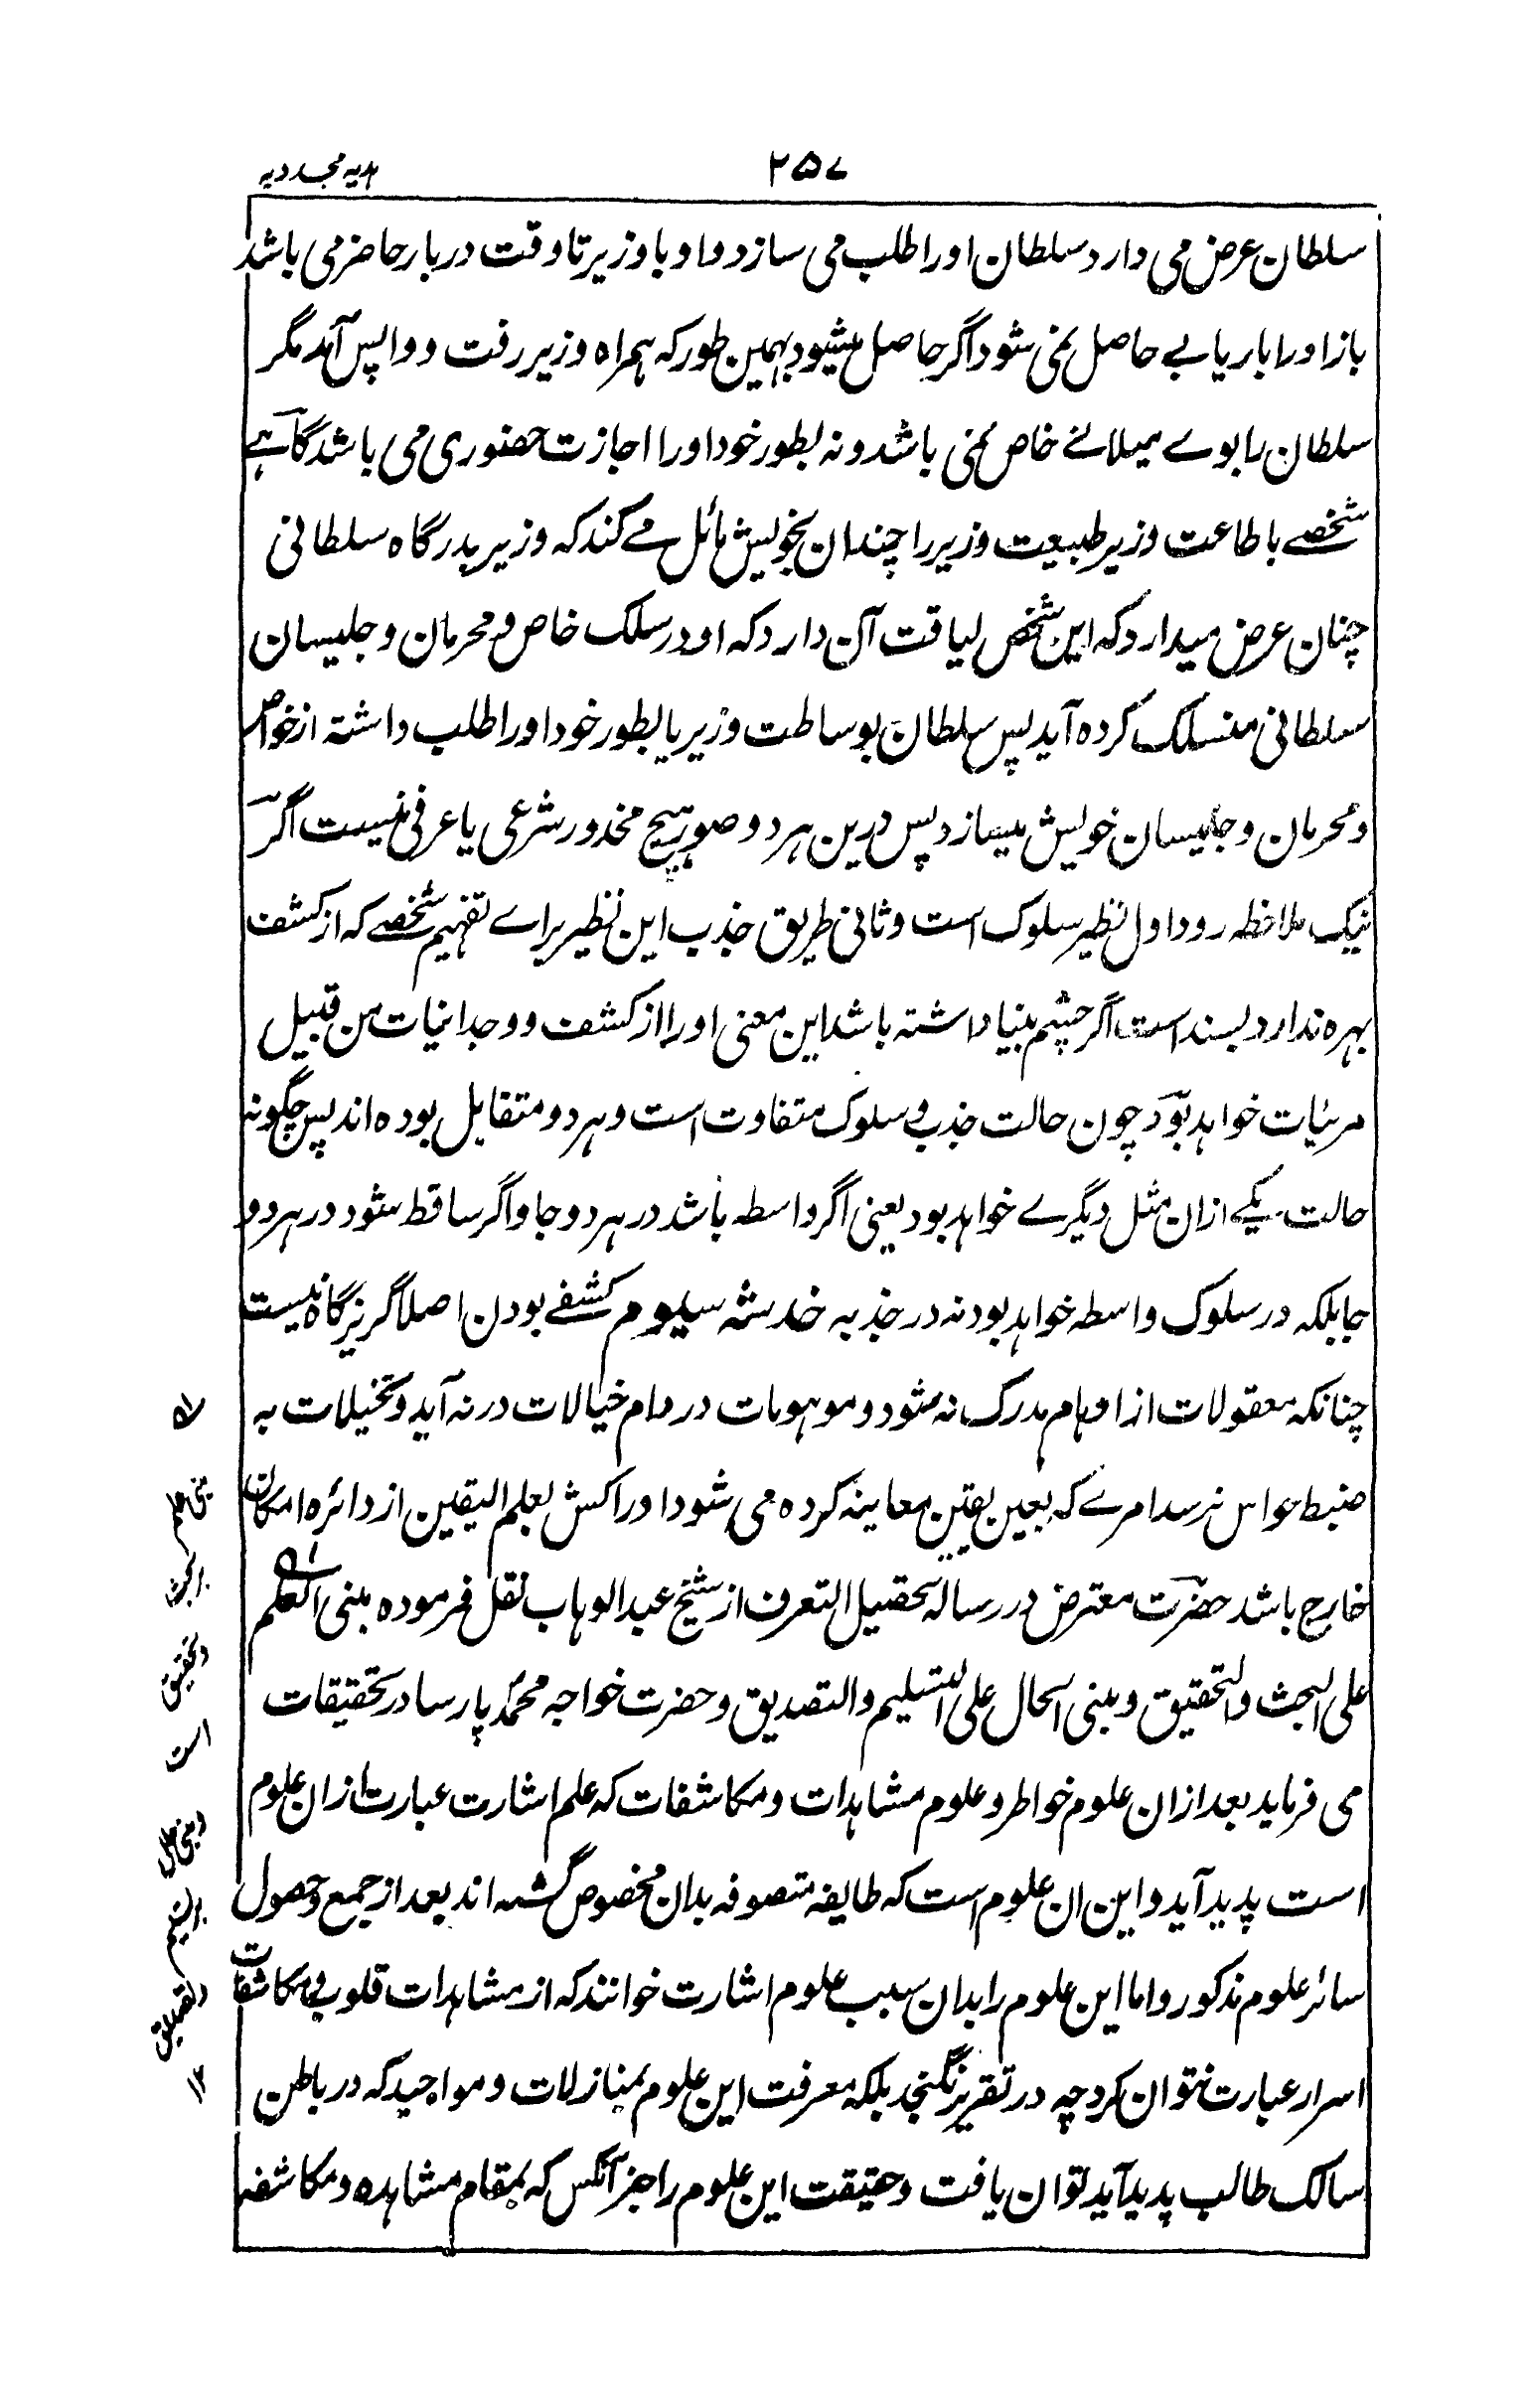 ہدیہ مجددیہ
۲۵۷
سلطان عرض می دارد سلطان اورا طلب می سازد و او با وزیر تا وقت دربار حاضر می باشد
باز اورا باریابے حاصل نمی شود اگر حاصل میشود بہمین طور کہ ہمراہ وزیر رفت و واپس آمد مگر
سلطان را بوے میلانے خاص نمی باشد و نہ بطور خود اورا اجازت حضوری می باشد گاہے
شخصے باطاعت وزیر طبیعت وزیر را چندان بخویش مائل مے کند کہ وزیر بدرگاہ سلطانی
چنان عرض میدارد کہ این شخص لیاقت آن دارد کہ او در سلک خاص و محرمان و جلیسان
سلطانی منسلک کردہ آید پس سلطان بوساطت وزیر یا بطور خود اورا طلب داشتہ از خواص
و محرمان و جلیسان خویش میسازد پس درین ہر دو صور ہیچ محذور شرعی یا عرفی نیست اگر
نیک ملاحظہ رود اول نظیر سلوک است و ثانی طریق جذب این نظیر براے تفہیم شخصے کہ از کشف
بہرہ ندارد بسند است اگر چشم بینا داشتہ باشد این معنی اورا از کشف و وجدانیات من قبیل
مرئیات خواہد بود چون حالت جذب و سلوک متفاوت است و ہر دو متقابل بودہ اند پس چگونہ
حالت یکے ازان مثل دیگرے خواہد بود یعنی اگر واسطہ باشد در ہر دو جا و اگر ساقط شود در ہر دو
جا بلکہ در سلوک واسطہ خواہد بود نہ در جذبہ خدشہ سیوم کشفے بودن اصلا گریزگاہ نیست
چنانکہ معقولات از اوہام مدرک نہ شود و موہومات در دام خیالات در نہ آید و تخیلات بہ
ضبط حواس نرسد امرے کہ بعین یقین معاینہ کردہ می شود ادراکش بعلم الیقین از دائرہ امکان
خارج باشد حضرت معترض در رسالہ تحصیل التعرف از شیخ عبدالوہاب نقل فرمودہ مبنی العلم
علی البحث والتحقیق و مبنی الحال علی التسلیم والتصدیق و حضرت خواجہ محمد پارسا در تحقیقات
می فرماید بعد ازان علوم خواطر و علوم مشاہدات و مکاشفات کہ علم اشارت عبارت ازان علوم
است پدید آید و این ان علوم است کہ طایفہ متصوفہ بدان مخصوص گشتہ اند بعد از جمع و حصول
سائر علوم مذکور و اما این علوم را بدان سبب علوم اشارت خوانند کہ از مشاہدات قلوب و مکاشفات
اسرار عبارت نتوان کرد چہ در تقریر نگنجد بلکہ معرفت این علوم بمنازلات و مواجید کہ در باطن
سالک طالب پدید آید توان یافت و حقیقت این علوم را جز آنکس کہ بمقام مشاہدہ و مکاشفہ
مبنی علم
بر بحث
و تحقیق
است
و مبنی حال
بر تسلیم
و تصدیق
۱۲